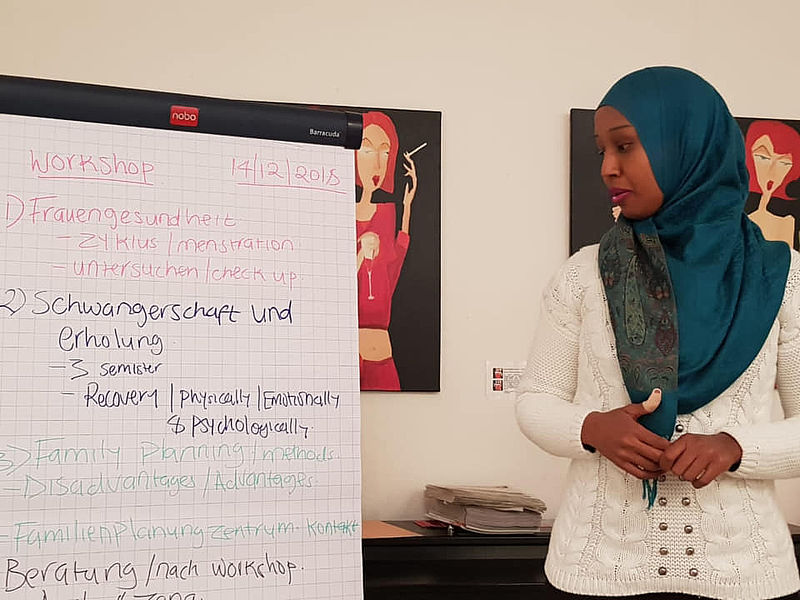 nobo
Barracuda
Workshop 14/12/2018
1) Frauengesundheit
- Zyklus/menstration
- untersuchen/check up
2) Schwangerschaft und
erholung
- 3 semister
- Recovery | physically | Emotionally
& psychologically.
3) Family planning/methods.
- Disadvantages/Advantages
- Familienplanungzentrum. Kontakt
Beratung/nach workshop.